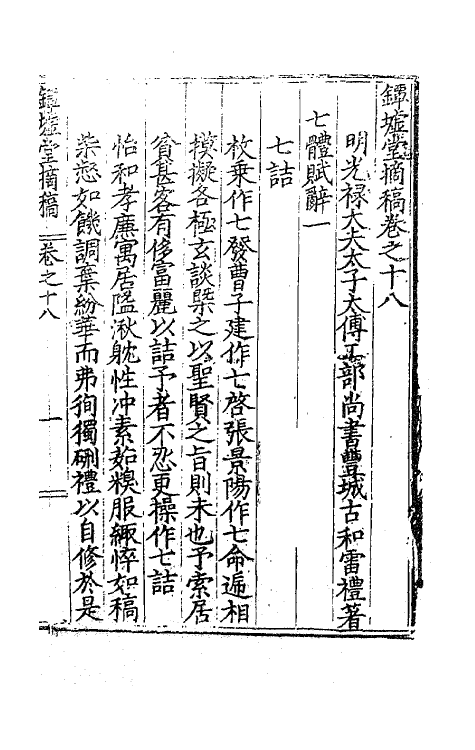 鐔墟堂摘稿卷之十八
明光禄大夫太子太傅工部尚書豐城古和雷禮著
七體賦辭一
七詰
枚乗作七發曹子建作七啓張景陽作七命遞相
模擬各極玄談槩之以聖賢之旨則未也予索居
貧甚客有侈富麗以詰予者不忍更操作七詰
怡和孝廉寓居隘湫躭性冲素茹糗服緼悴如稿
柴惄如饑調棄紛華而弗徇獨硎禮以自修於是
鐔墟堂摘稿 卷之十八 一